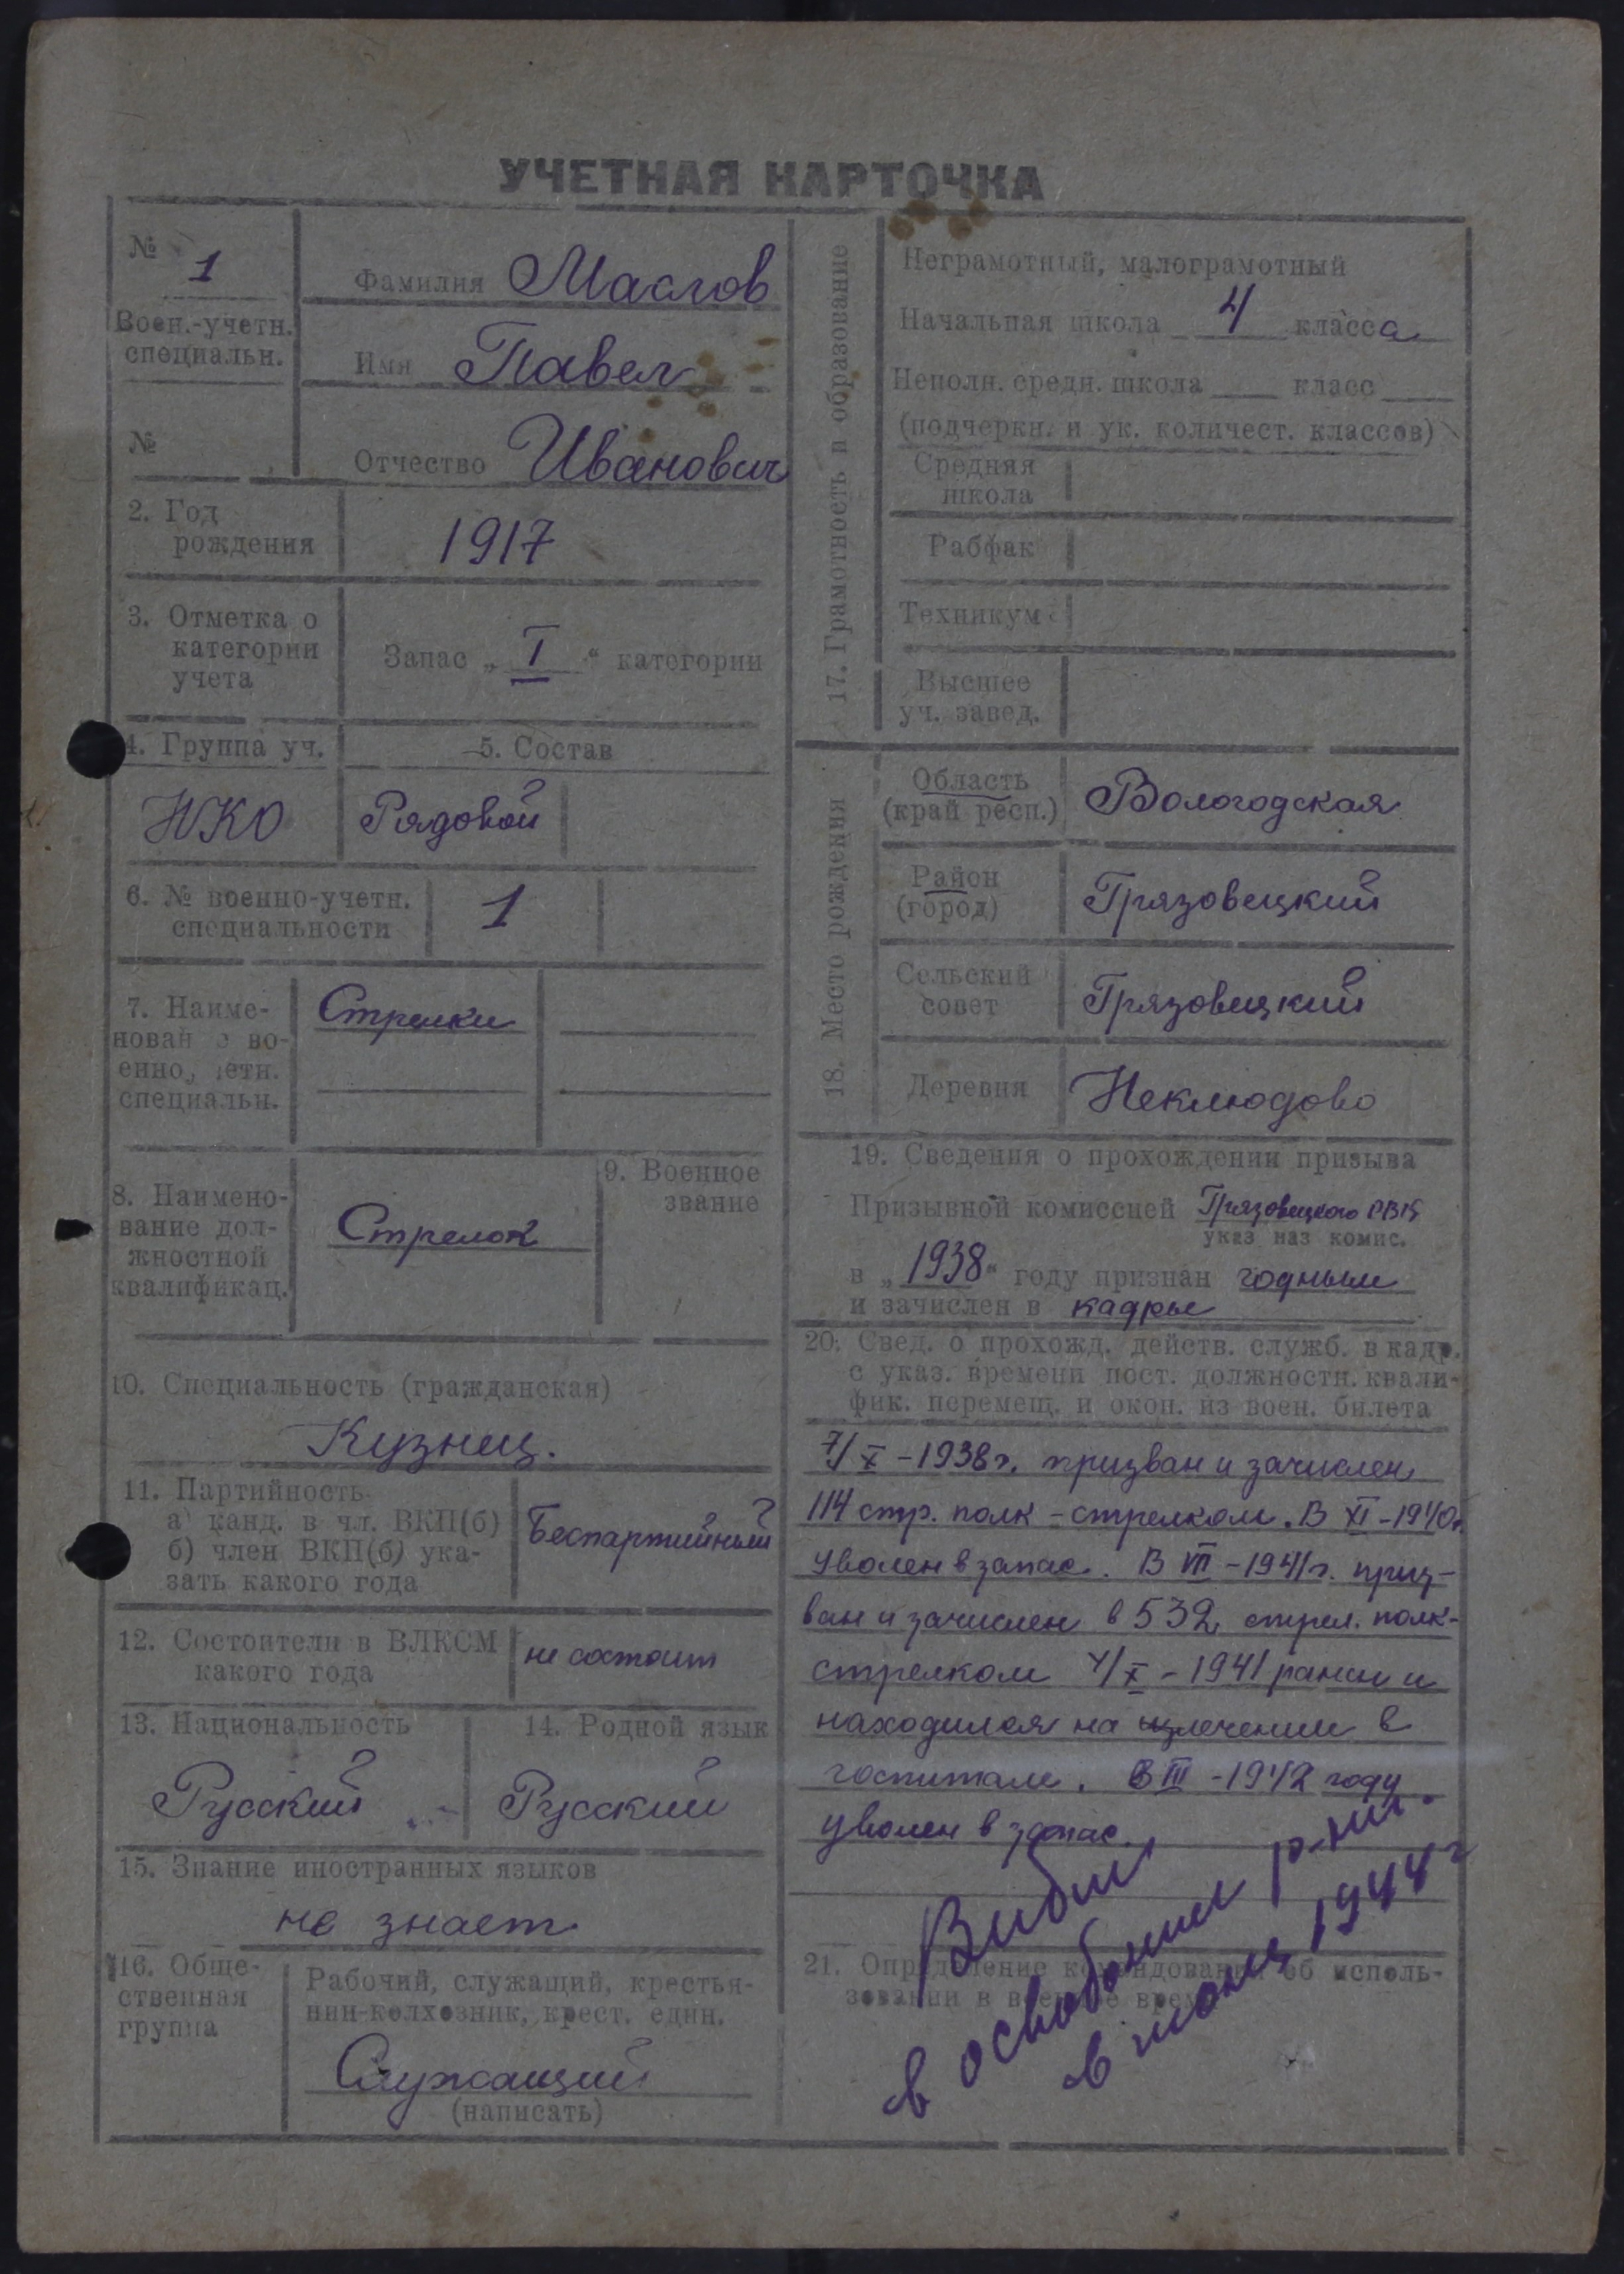 УЧЕТНАЯ КАРТОЧКА
№ 1
Воен.-учетн.
специальн.
№
Фамилия Маслов
Имя Павел
Отчество Иванович
2. Год
рождения
1917
3. Отметка о
категории
учета
Запас „ I “ категории
4. Группа уч.
НКО
5. Состав
Рядовой
6. № военно-учетн.
специальности
1
7. Наиме-
нован е во-
енно, четн.
специальн.
Стрелки
8. Наимено-
вание дол-
жностной
квалификац.
Стрелок
9. Военное
звание
10. Специальность (гражданская)
Кузнец.
11. Партийность
а) канд. в чл. ВКП(б)
б) член ВКП(б) ука-
зать какого года
Беспартийный
12. Состоители в ВЛКСМ
какого года
не состоит
13. Национальность
Русский
14. Родной язык
Русский
15. Знание иностранных языков
не знает
16. Обще-
ственная
группа
Рабочий, служащий, крестья-
нин-колхозник, крест. един.
Служащий
(написать)
17. Грамотность и образование
Неграмотный, малограмотный
Начальная школа 4 класса
Неполн. средн. школа класс
(подчеркн. и ук. количест. классов)
Средняя
школа
Рабфак
Техникум
Высшее
уч. завед.
18. Место рождения
Область
(край респ.)
Вологодская
Район
(город)
Грязовецкий
Сельский
совет
Грязовецкий
Деревня
Неклюдово
19. Сведения о прохождении призыва
Призывной комиссией Грязовецкого РВК
указ наз комис.
в „ 1938 “ году признан годным
и зачислен в кадры
20. Свед. о прохожд. действ. служб. в кадр.
с указ. времени пост. должностн. квали-
фик. перемещ. и окон. из воен. билета
7/X - 1938 г. призван и зачислен
114 стр. полк - стрелком. В XI - 1940 г.
уволен в запас. В VII - 1941 г. приз-
ван и зачислен в 532 стрел. полк-
стрелком 4/X - 1941 ранен и
находился на излечении в
госпитале. В III - 1942 году
уволен в запас.
21. Определение командования об исполь-
зовании в военное время
Выбыл
в освобожден р-ны.
в 1944 г